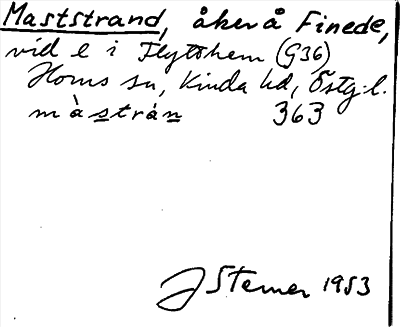 Maststrand, åker å Finede,
vid l i Flytthem (G36)
Horns sn, Kinda hd, Östg.l.
màstrán 363
J Sterner 1953